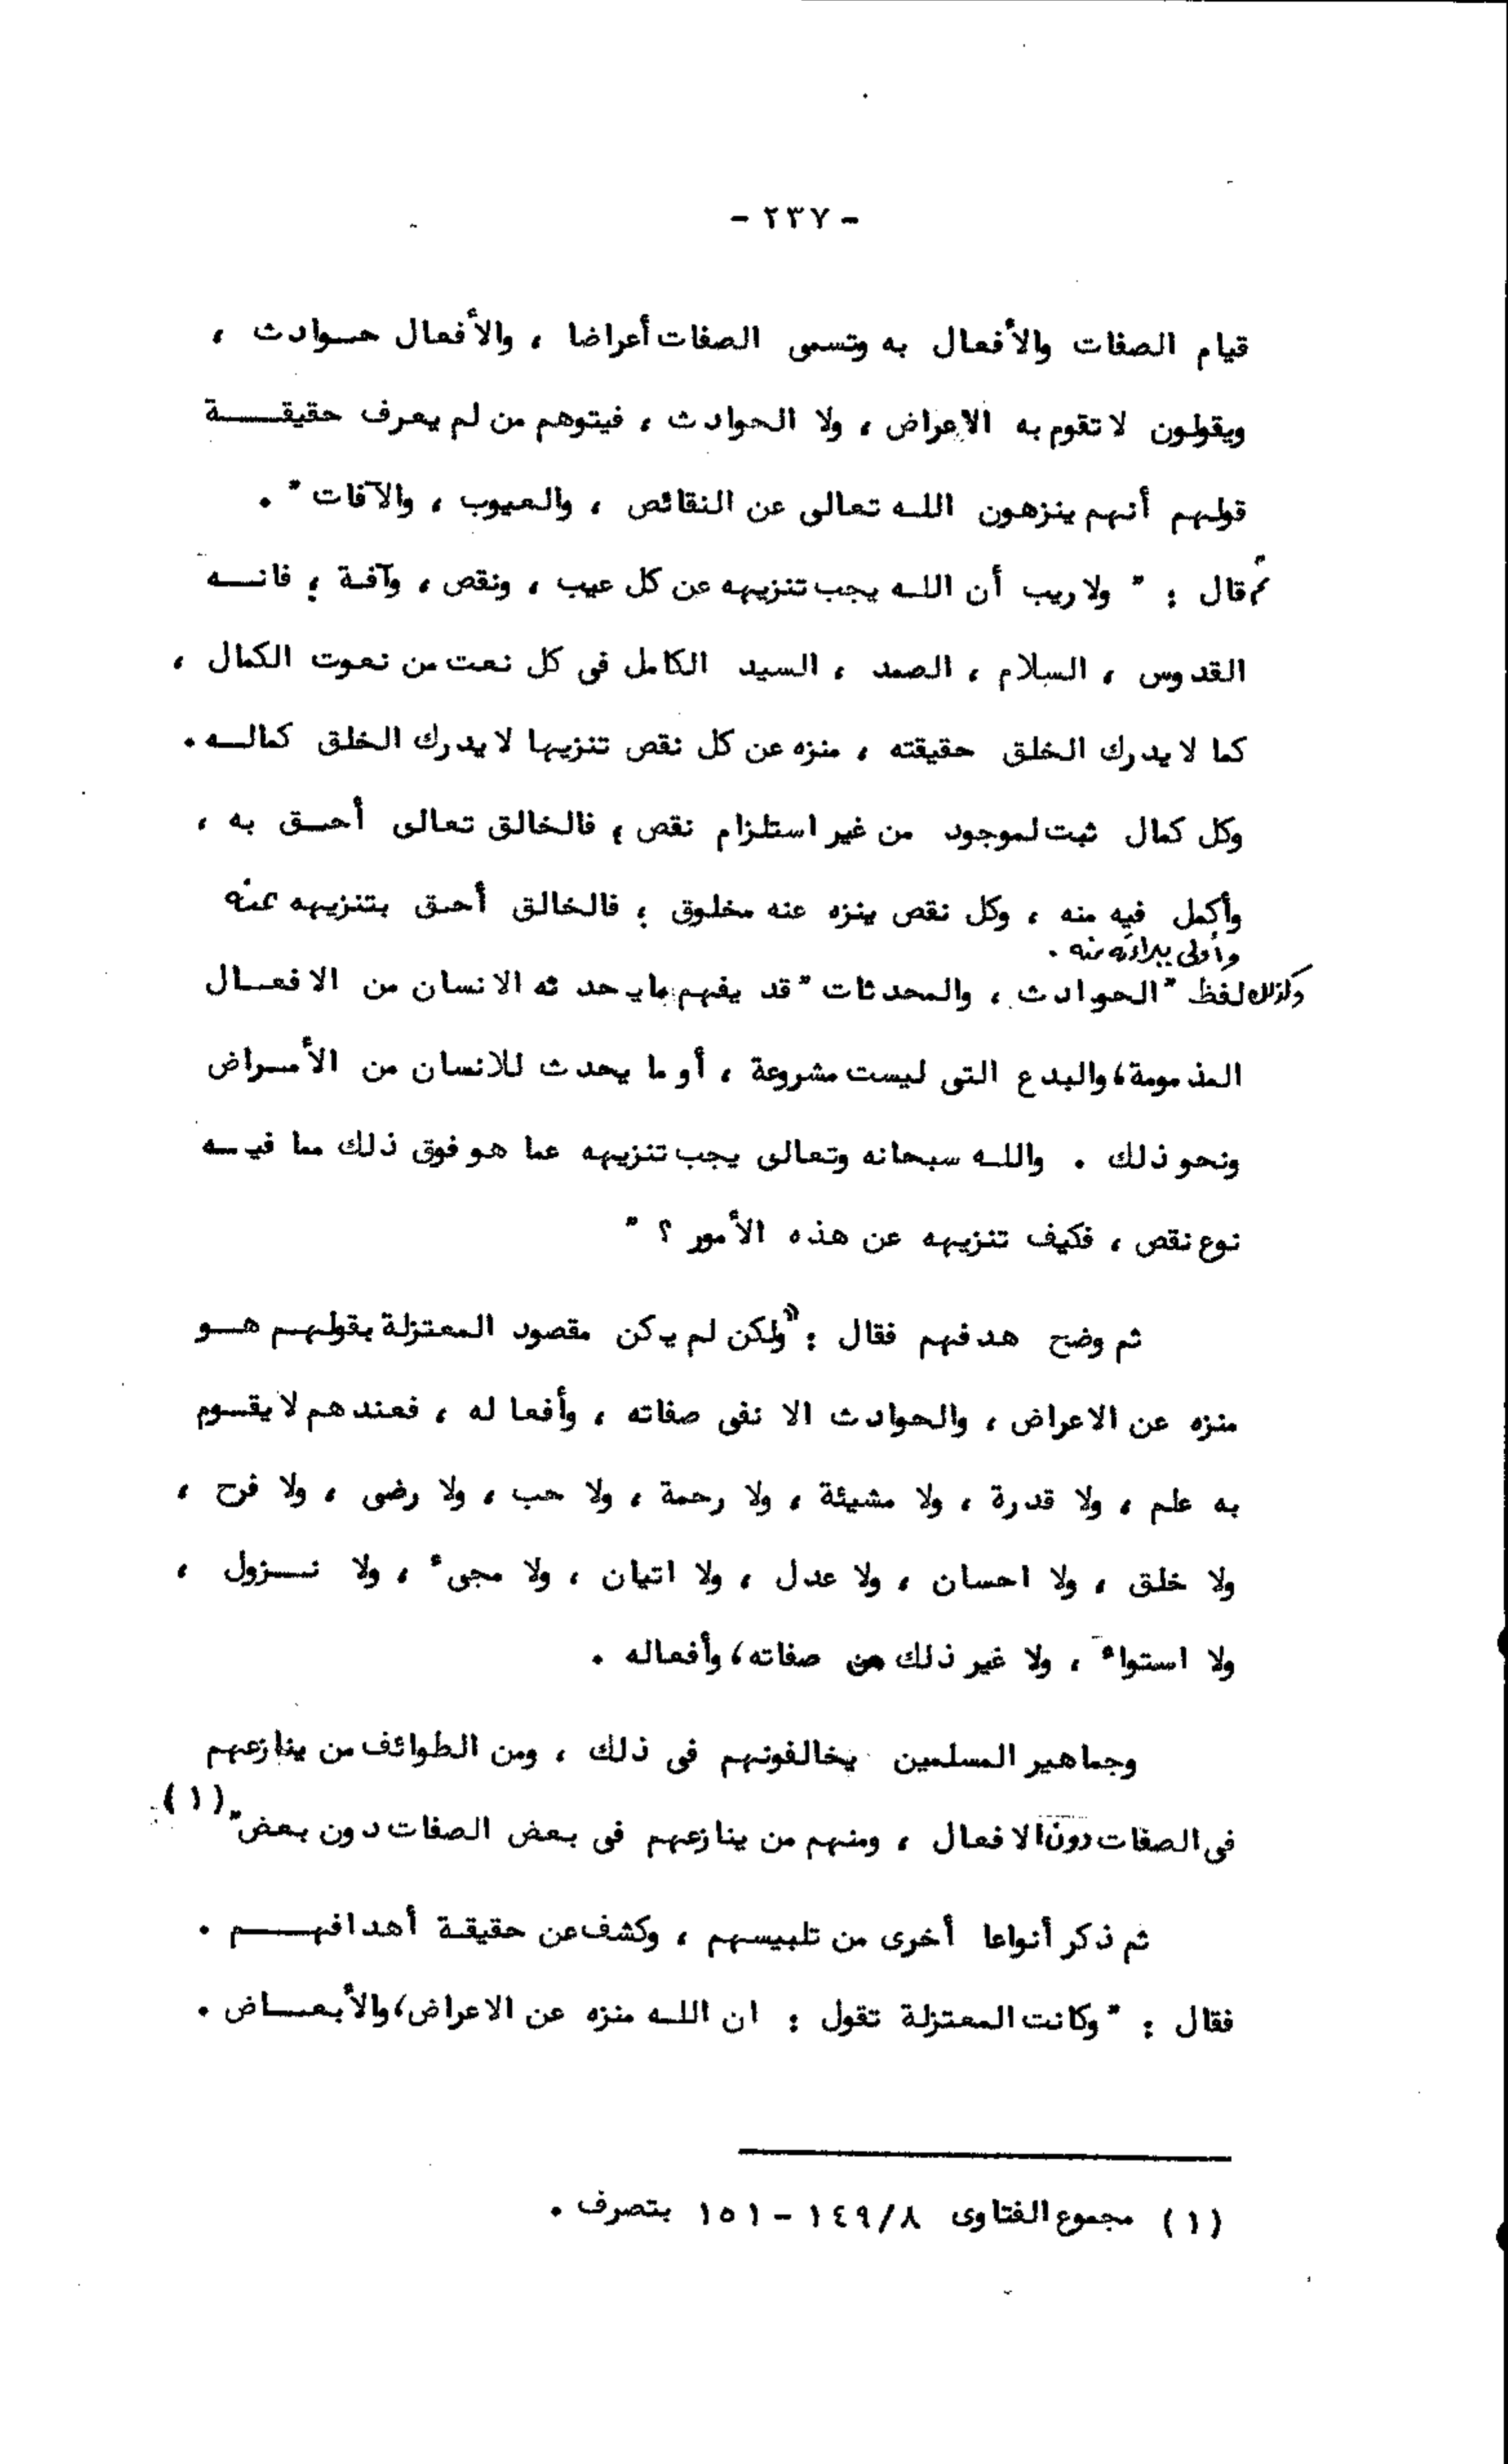 - ٢٣٧ -
قيام الصفات والأفعال به وتسمى الصفات أعراضا ، والأفعال حوادث ،
ويقولون لا تقوم به الاعراض ، ولا الحوادث ، فيتوهم من لم يعرف حقيقة
قولهم أنهم ينزهون الله تعالى عن النقائص ، والعيوب ، والآفات " .
ثم قال : " ولا ريب أن الله يجب تنزيهه عن كل عيب ، ونقص ، وآفة ؛ فانه
القدوس ، السلام ، الصمد ، السيد الكامل فى كل نعت من نعوت الكمال ،
كما لا يدرك الخلق حقيقته ، منزه عن كل نقص تنزيها لا يدرك الخلق كماله .
وكل كمال ثبت لموجود من غير استلزام نقص ؛ فالخالق تعالى أحق به ،
وأكمل فيه منه ، وكل نقص ينزه عنه مخلوق ؛ فالخالق أحق بتنزيهه عنه
وأولى ببراءته منه .
وكذلك لفظ " الحوادث ، والمحدثات " قد يفهم ما يحدثه الانسان من الافعال
المذمومة ، والبدع التى ليست مشروعة ، أو ما يحدث للانسان من الأمراض
ونحو ذلك . والله سبحانه وتعالى يجب تنزيهه عما هو فوق ذلك مما فيه
نوع نقص ، فكيف تنزيهه عن هذه الأمور ؟ "
ثم وضح هدفهم فقال : " ولكن لم يكن مقصود المعتزلة بقولهم هو
منزه عن الاعراض ، والحوادث الا نفى صفاته ، وأفعاله ، فعندهم لا يقوم
به علم ، ولا قدرة ، ولا مشيئة ، ولا رحمة ، ولا حب ، ولا رضى ، ولا فرح ،
ولا خلق ، ولا احسان ، ولا عدل ، ولا اتيان ، ولا مجىء ، ولا نزول ،
ولا استواء ، ولا غير ذلك من صفاته ، وأفعاله .
وجماهير المسلمين يخالفونهم فى ذلك ، ومن الطوائف من ينازعهم
فى الصفات دون الافعال ، ومنهم من ينازعهم فى بعض الصفات دون بعض " (١) .
ثم ذكر أنواعا أخرى من تلبيسهم ، وكشف عن حقيقة أهدافهم .
فقال : " وكانت المعتزلة تقول : ان الله منزه عن الاعراض ، والأبعاض .
(١) مجموع الفتاوى ١٤٩/٨ - ١٥١ بتصرف .